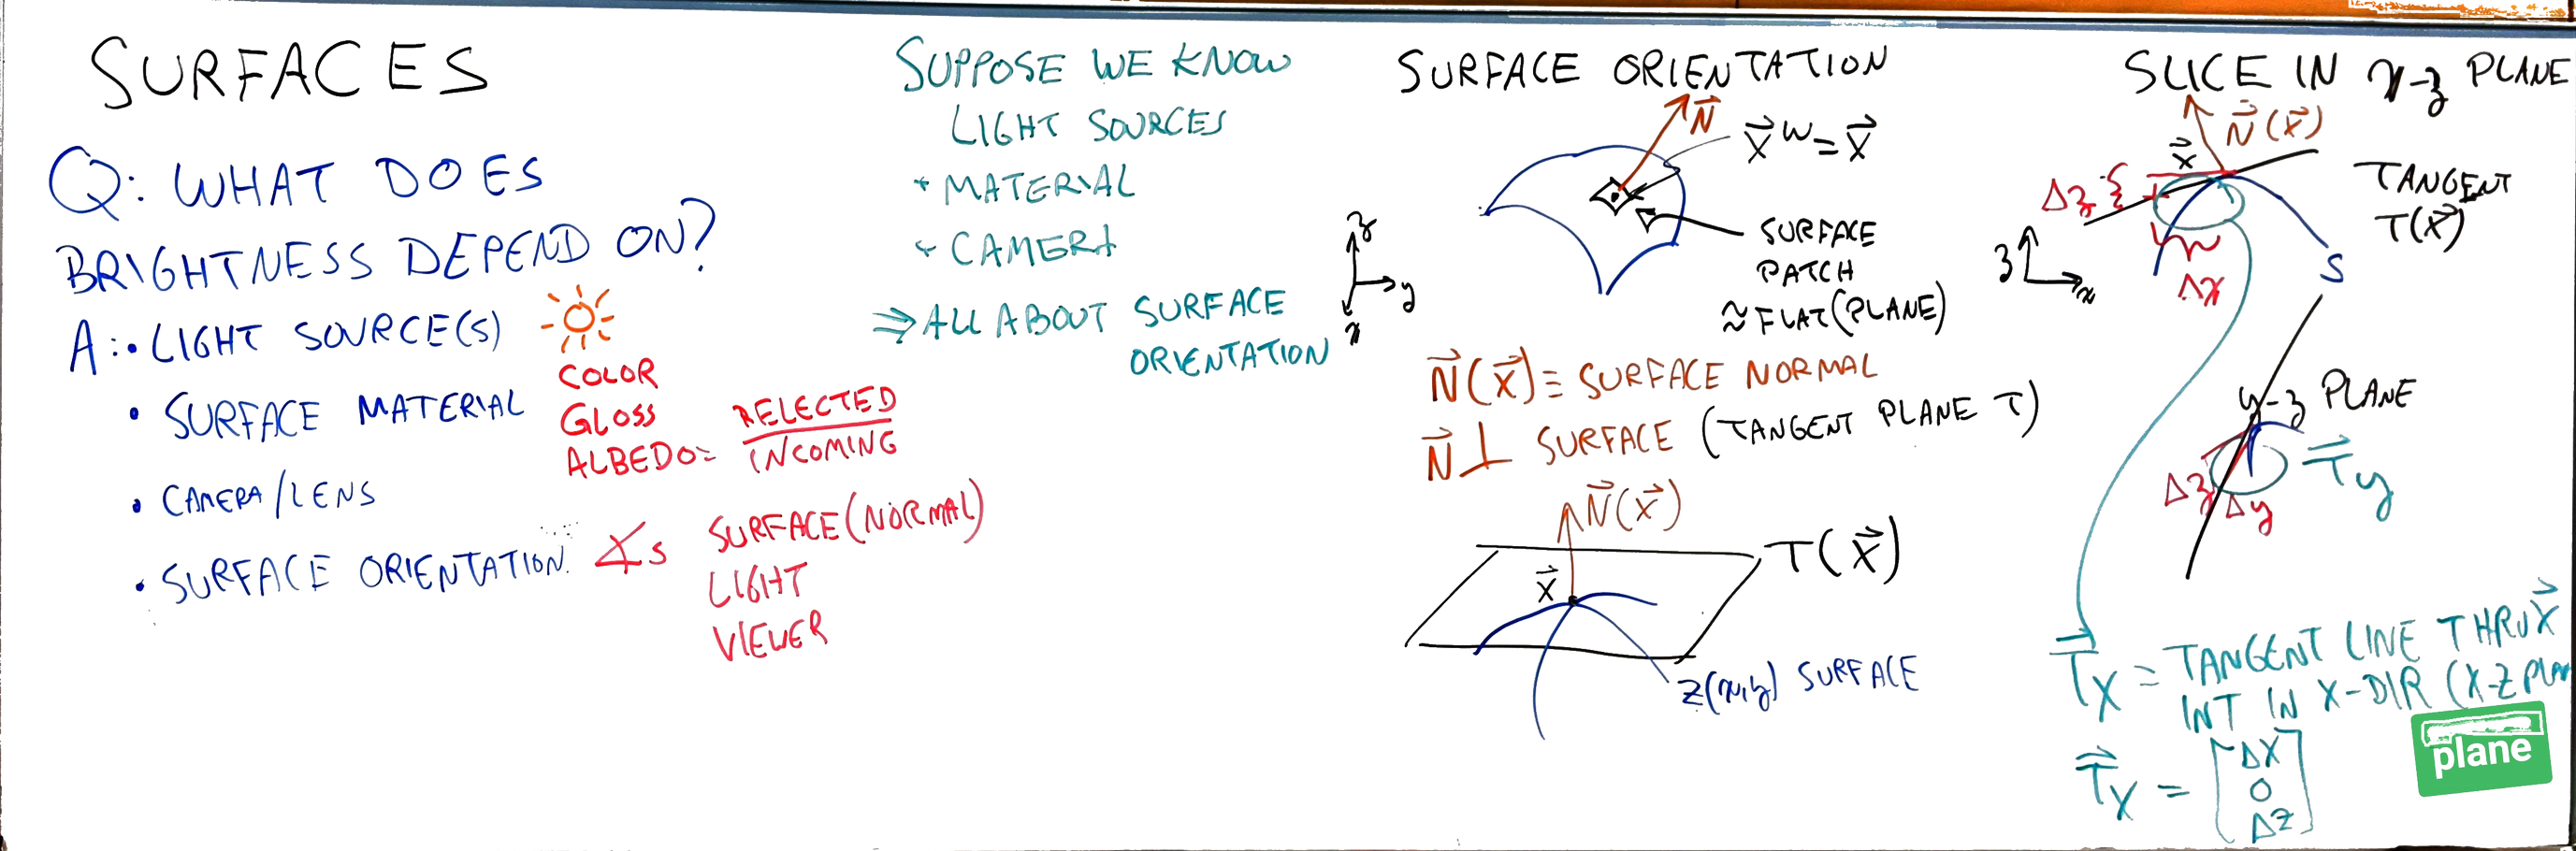 SURFACES
Q: WHAT DOES
BRIGHTNESS DEPEND ON?
A: • LIGHT SOURCE(S)
• SURFACE MATERIAL
COLOR
GLOSS
ALBEDO = RELECTED
INCOMING
• CAMERA/LENS
• SURFACE ORIENTATION
∡s SURFACE (NORMAL)
LIGHT
VIEWER
SUPPOSE WE KNOW
LIGHT SOURCES
+ MATERIAL
+ CAMERA
⇒ ALL ABOUT SURFACE
ORIENTATION
SURFACE ORIENTATION
N⃗
X⃗ᵂ = X⃗
z
y
x
SURFACE
PATCH
≈ FLAT (PLANE)
N⃗(X⃗) ≡ SURFACE NORMAL
N⃗ ⊥ SURFACE (TANGENT PLANE T)
N⃗(X⃗)
X⃗
T(X⃗)
Z(x,y) SURFACE
SLICE IN x-z PLANE
N⃗(X⃗)
X⃗
Δz
TANGENT
T(X⃗)
z
x
Δx
S
y-z PLANE
T⃗y
Δz
Δy
T⃗x = TANGENT LINE THRU X⃗
INT IN X-DIR (X-Z PLAN
plane
T⃗x = [ΔX
0
ΔZ]